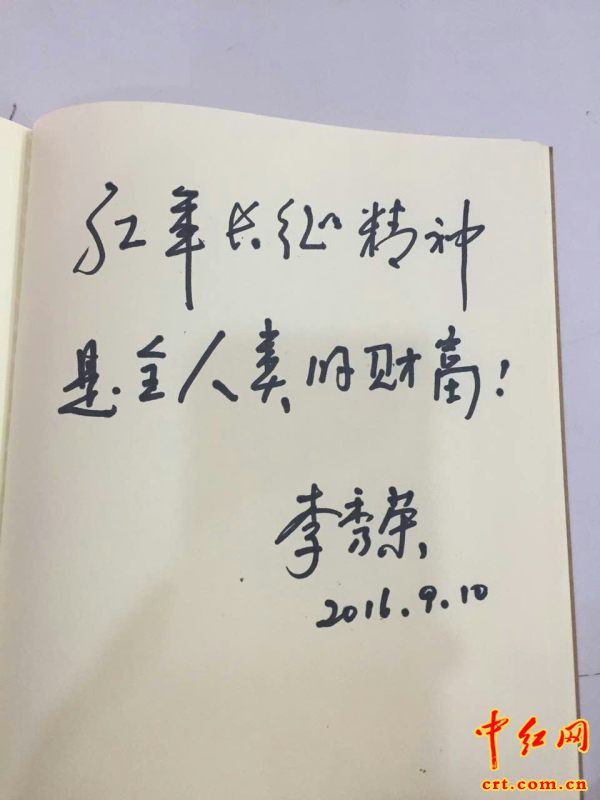 红军长征精神
是全人类的财富！
李秀荣
2016.9.10
中红网
crt.com.cn